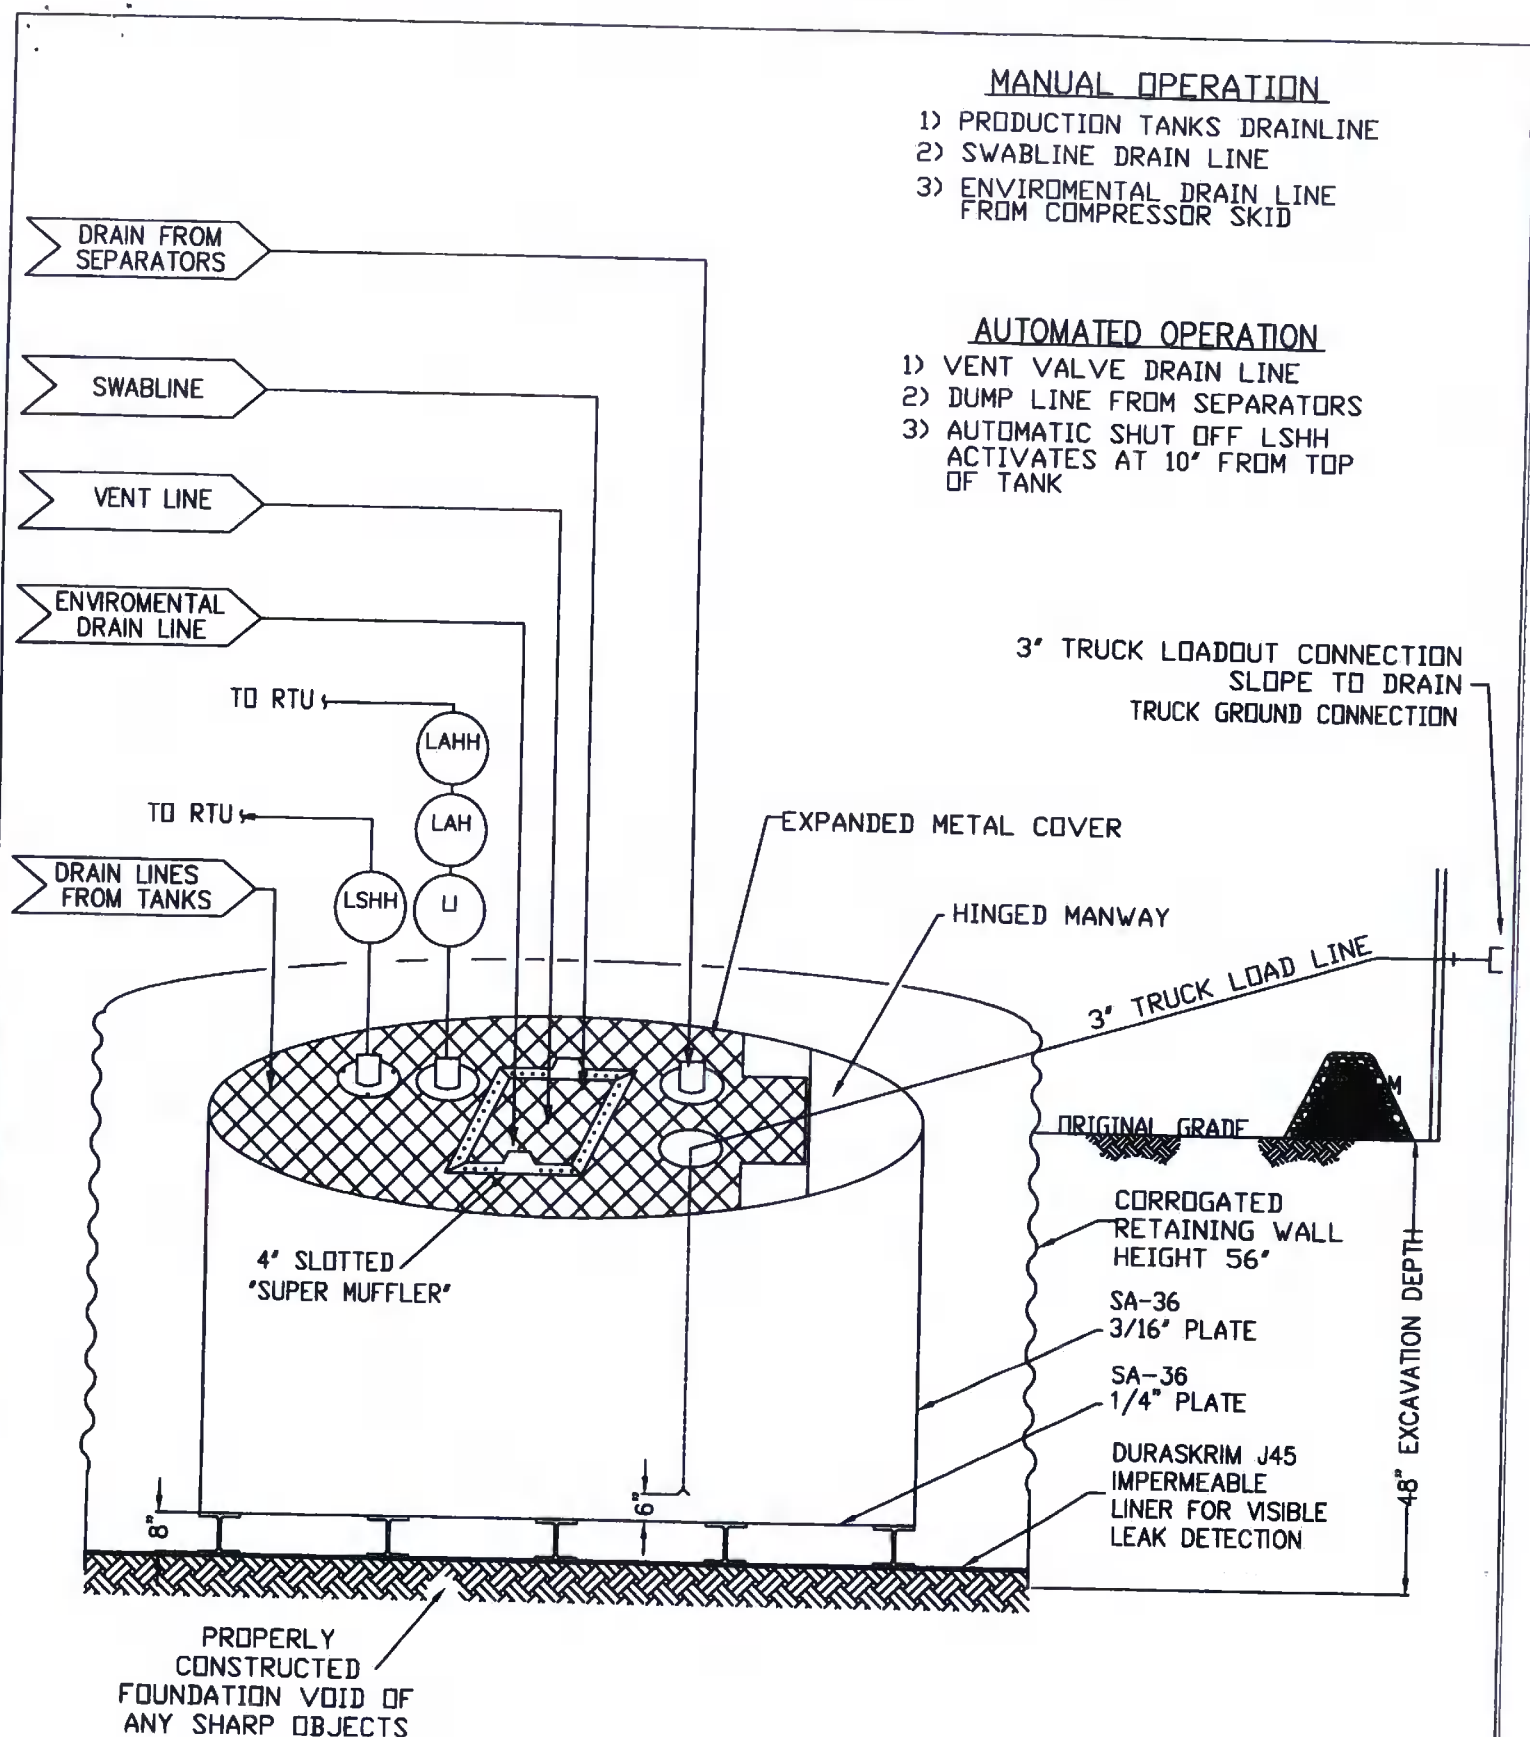 MANUAL OPERATION
1) PRODUCTION TANKS DRAINLINE
2) SWABLINE DRAIN LINE
3) ENVIROMENTAL DRAIN LINE
FROM COMPRESSOR SKID
AUTOMATED OPERATION
1) VENT VALVE DRAIN LINE
2) DUMP LINE FROM SEPARATORS
3) AUTOMATIC SHUT OFF LSHH
ACTIVATES AT 10" FROM TOP
OF TANK
DRAIN FROM
SEPARATORS
SWABLINE
VENT LINE
ENVIROMENTAL
DRAIN LINE
TO RTU
LAHH
TO RTU
LAH
DRAIN LINES
FROM TANKS
LSHH
LI
3" TRUCK LOADOUT CONNECTION
SLOPE TO DRAIN
TRUCK GROUND CONNECTION
EXPANDED METAL COVER
HINGED MANWAY
3" TRUCK LOAD LINE
M
ORIGINAL GRADE
CORROGATED
RETAINING WALL
HEIGHT 56"
4" SLOTTED
"SUPER MUFFLER"
SA-36
3/16" PLATE
SA-36
1/4" PLATE
DURASKRIM J45
IMPERMEABLE
LINER FOR VISIBLE
LEAK DETECTION
48" EXCAVATION DEPTH
8"
6"
PROPERLY
CONSTRUCTED
FOUNDATION VOID OF
ANY SHARP OBJECTS